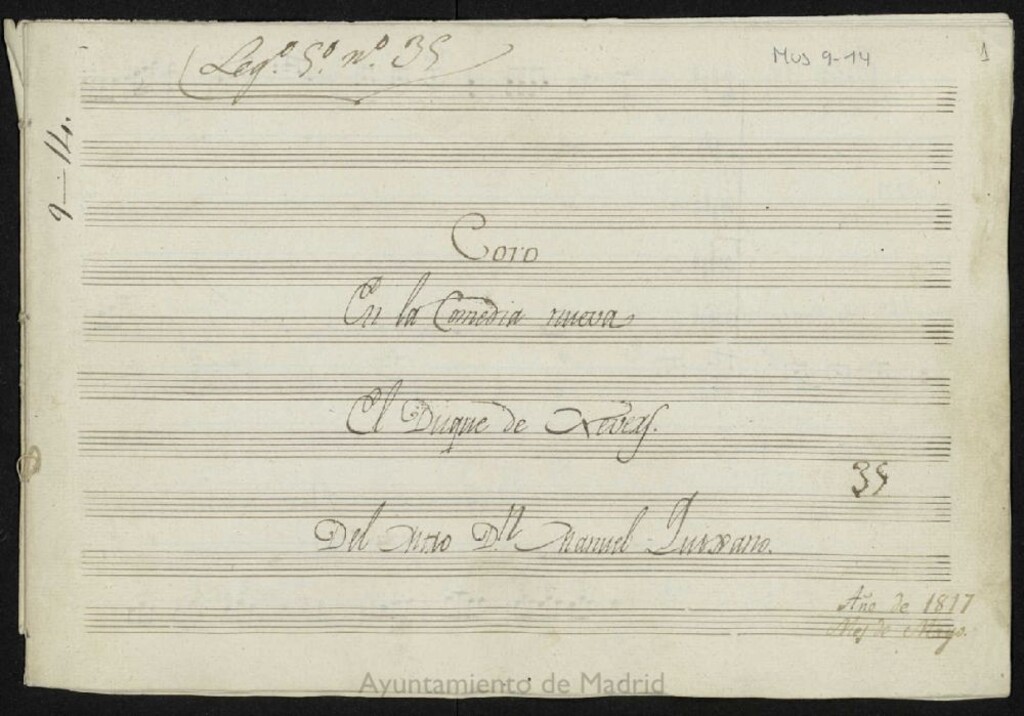 Leg.º 5.º n.º 35
Mus 9-14
1
9-14.
Coro
En la Comedia nueva
El Duque de Nevers.
35
Del Mtro D.n Manuel Quixano.
Año de 1817
Mes de Mayo.
Ayuntamiento de Madrid